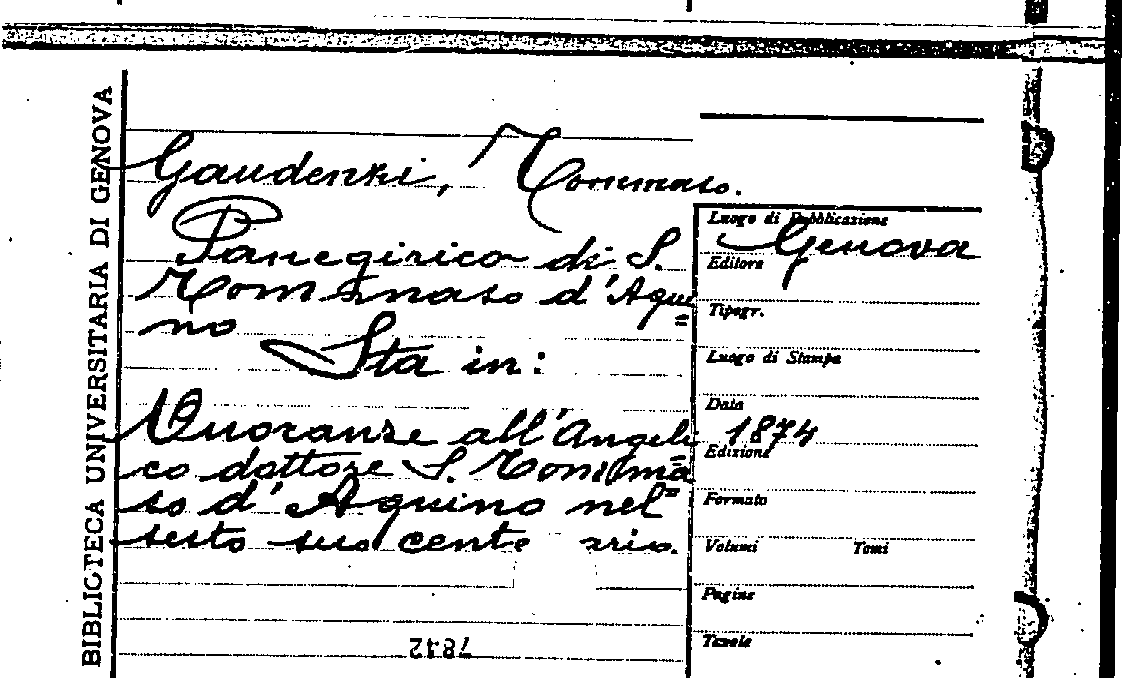 BIBLIOTECA UNIVERSITARIA DI GENOVA
Gaudenzi, Tommaso.
Panegirico di S.
Tommaso d'Aqui=
no
Sta in:
Onoranze all'Angeli=
co dottore S. Tomma=
so d'Aquino nel
sesto suo cente ario.
7842
Luogo di Pubblicazione
Genova
Editore
Tipogr.
Luogo di Stampa
Data
1874
Edizione
Formato
Volumi Tomi
Pagine
Tavole